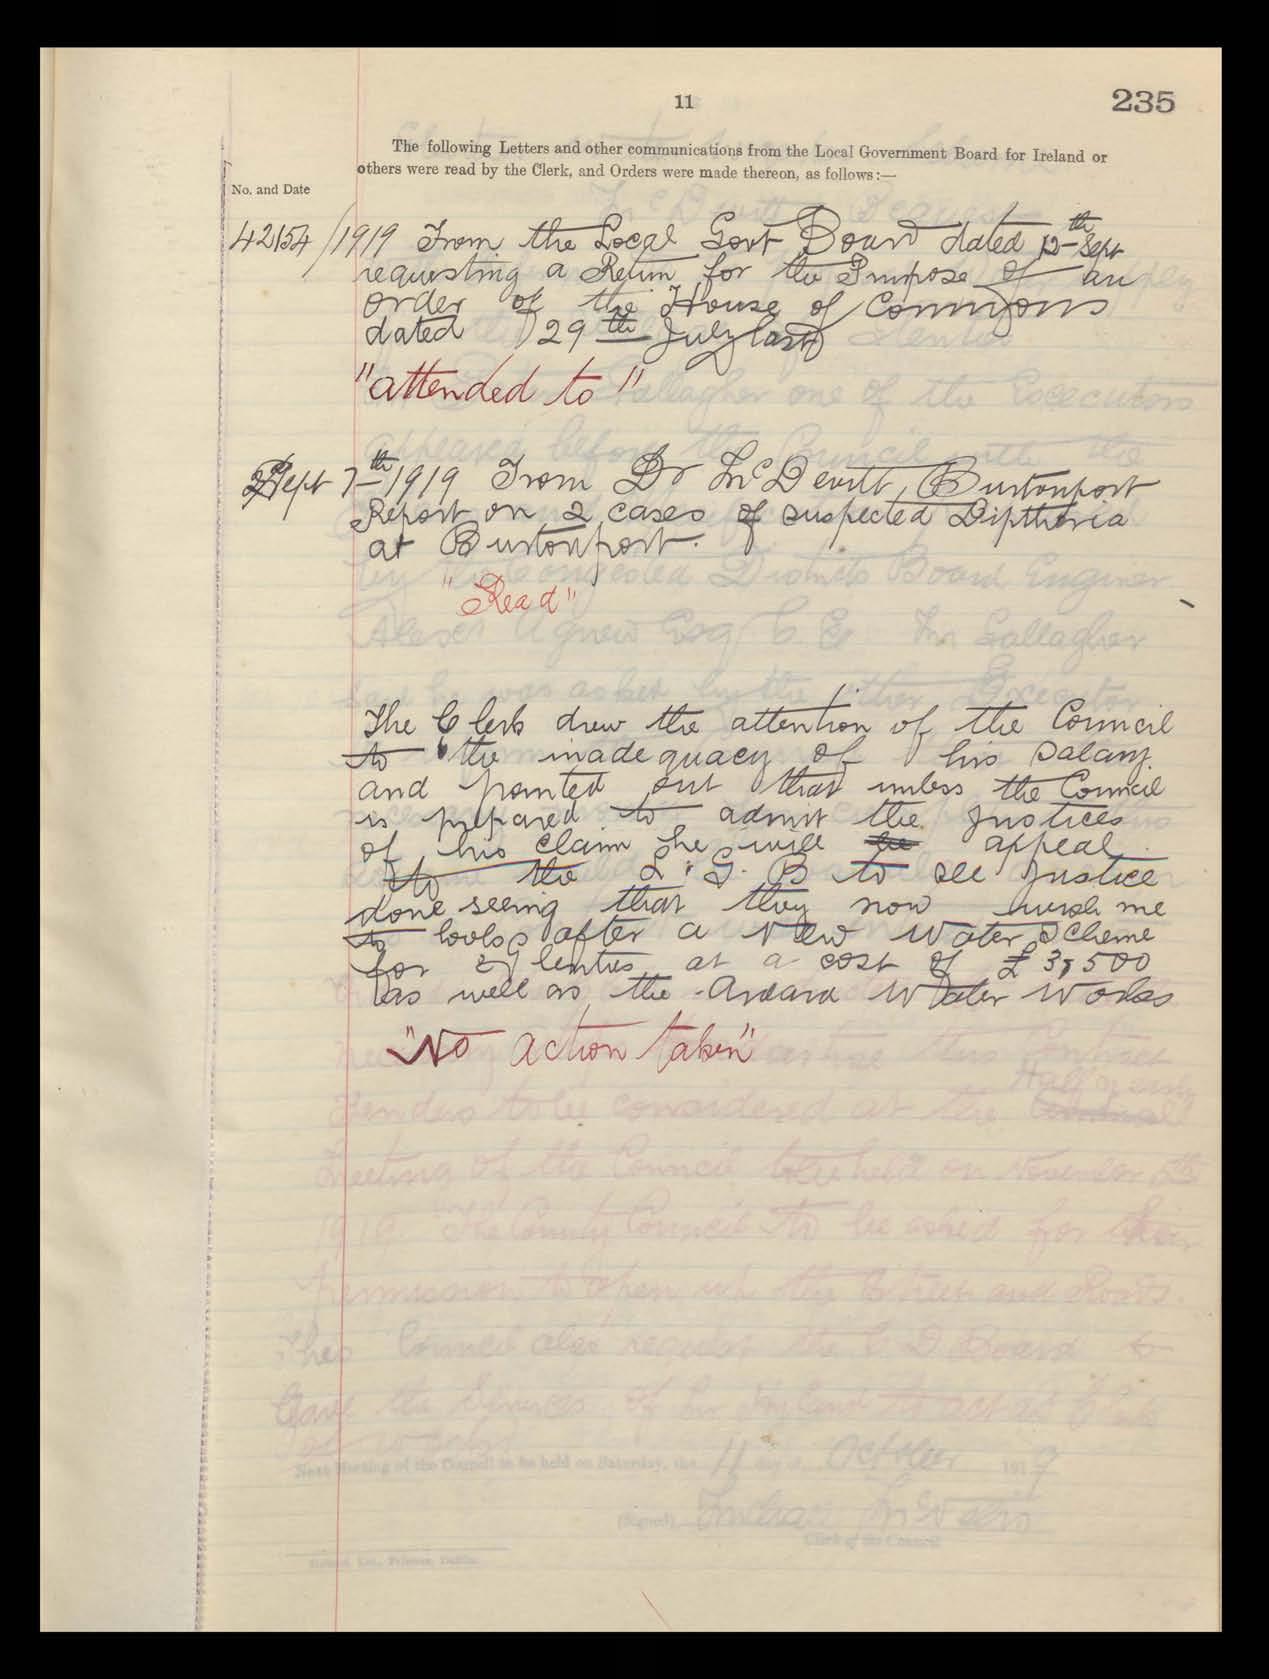 11
235
The following Letters and other communications from the Local Government Board for Ireland or
others were read by the Clerk, and Orders were made thereon, as follows:—
No. and Date
42154/1919 From the Local Govt Board dated 12th Sept
requesting a Return for the Purpose of an
order of the House of Commons
dated 29th July last
"attended to"
Sept 7th 1919 From Dr McDevitt, Burtonport
Report on 2 cases of suspected Diptheria
at Burtonport.
"Read"
The Clerk drew the attention of the Council
to the inadequacy of his Salary.
and pointed out that unless the Council
is prepared to admit the Justices
of his claim he will be appeal
to the L. G. B to see Justice
done seeing that they now wish me
to look after a New Water Scheme
for Glenties at a cost of £3,500
as well as the Ardara Water Works
"No action taken"